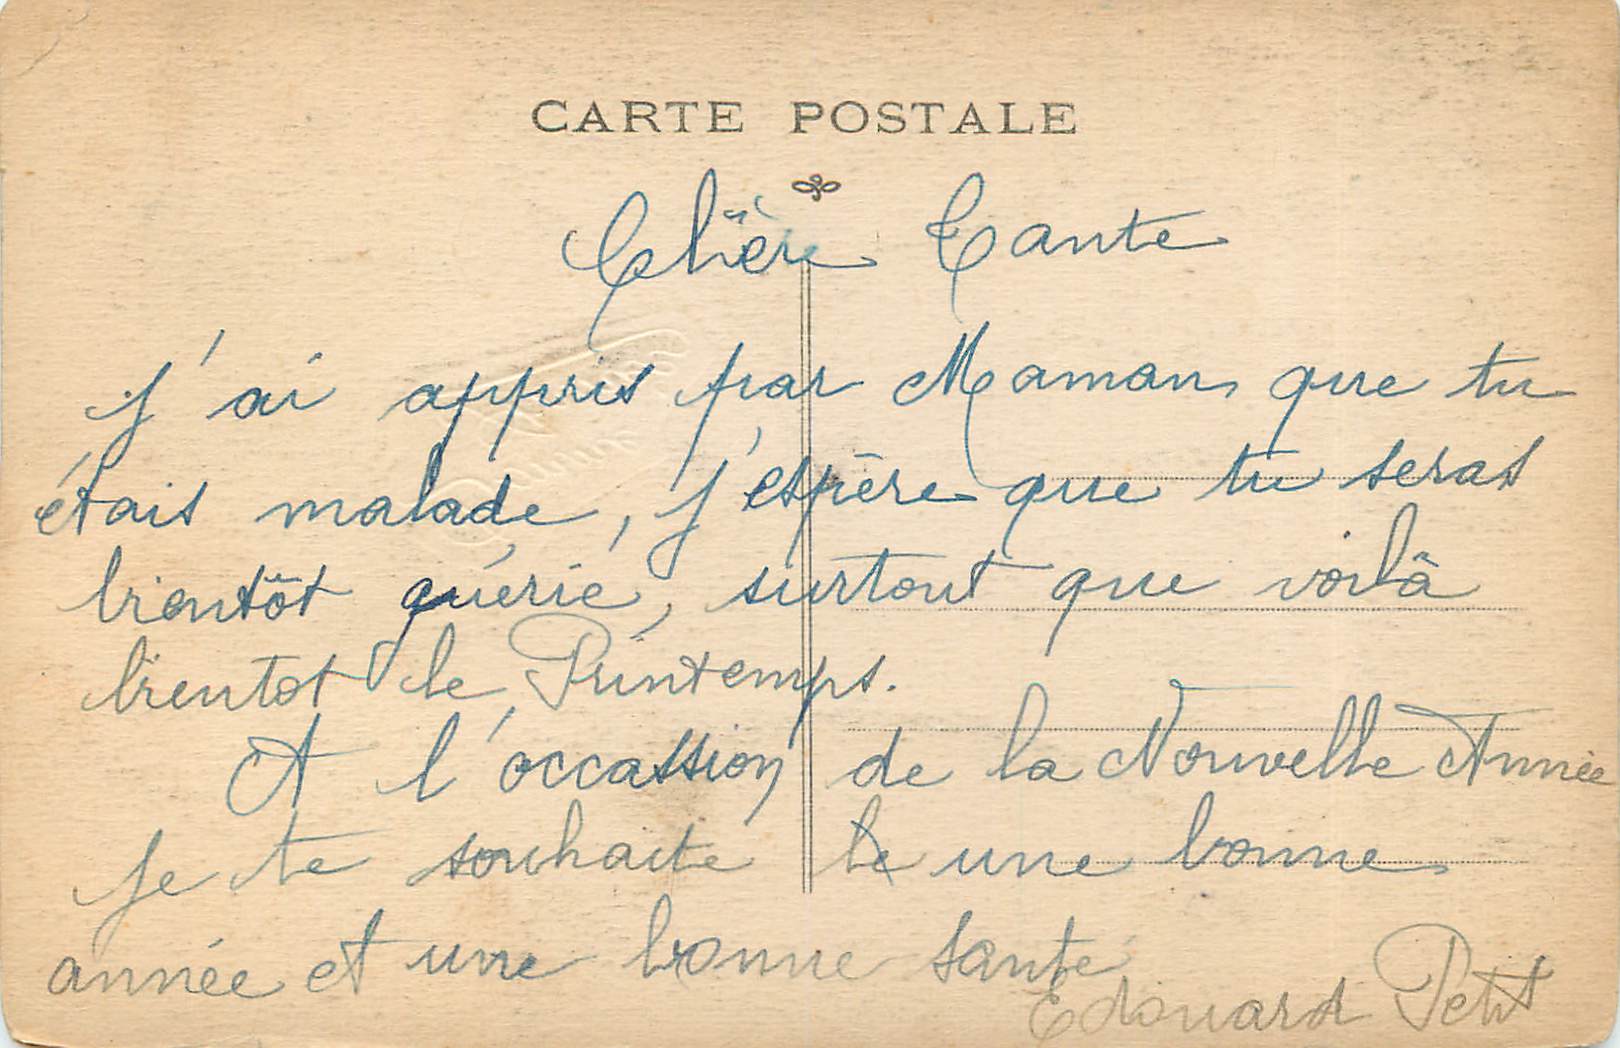 CARTE POSTALE
Chère Tante
j'ai appris par Maman que tu
étais malade, j'espère que tu seras
bientôt guérie, surtout que voilà
bientot le Printemps.
A l'occassion de la Nouvelle Année
je te souhaite le une bonne
année et une bonne santé
Edouard Petit